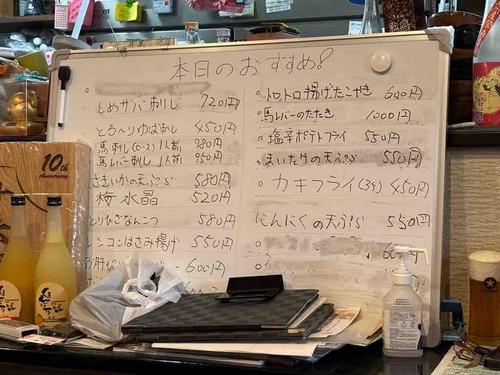 本日のおすすめ!
しめサバ刺し 720円
とろ〜りゆば刺し 450円
馬刺し(ロース)1人前 980円
馬レバー刺し 1人前 950円
さきいかの天ぷら 580円
梅水晶 520円
とりひざなんこつ 580円
レンコンはさみ揚げ 550円
600円
トロトロ揚げたこやき 600円
馬レバーのたたき 1000円
塩辛ポテトフライ 550円
まいたけの天ぷら 550円
カキフライ(3ケ) 450円
にんにくの天ぷら 550円
10th
Anniversary